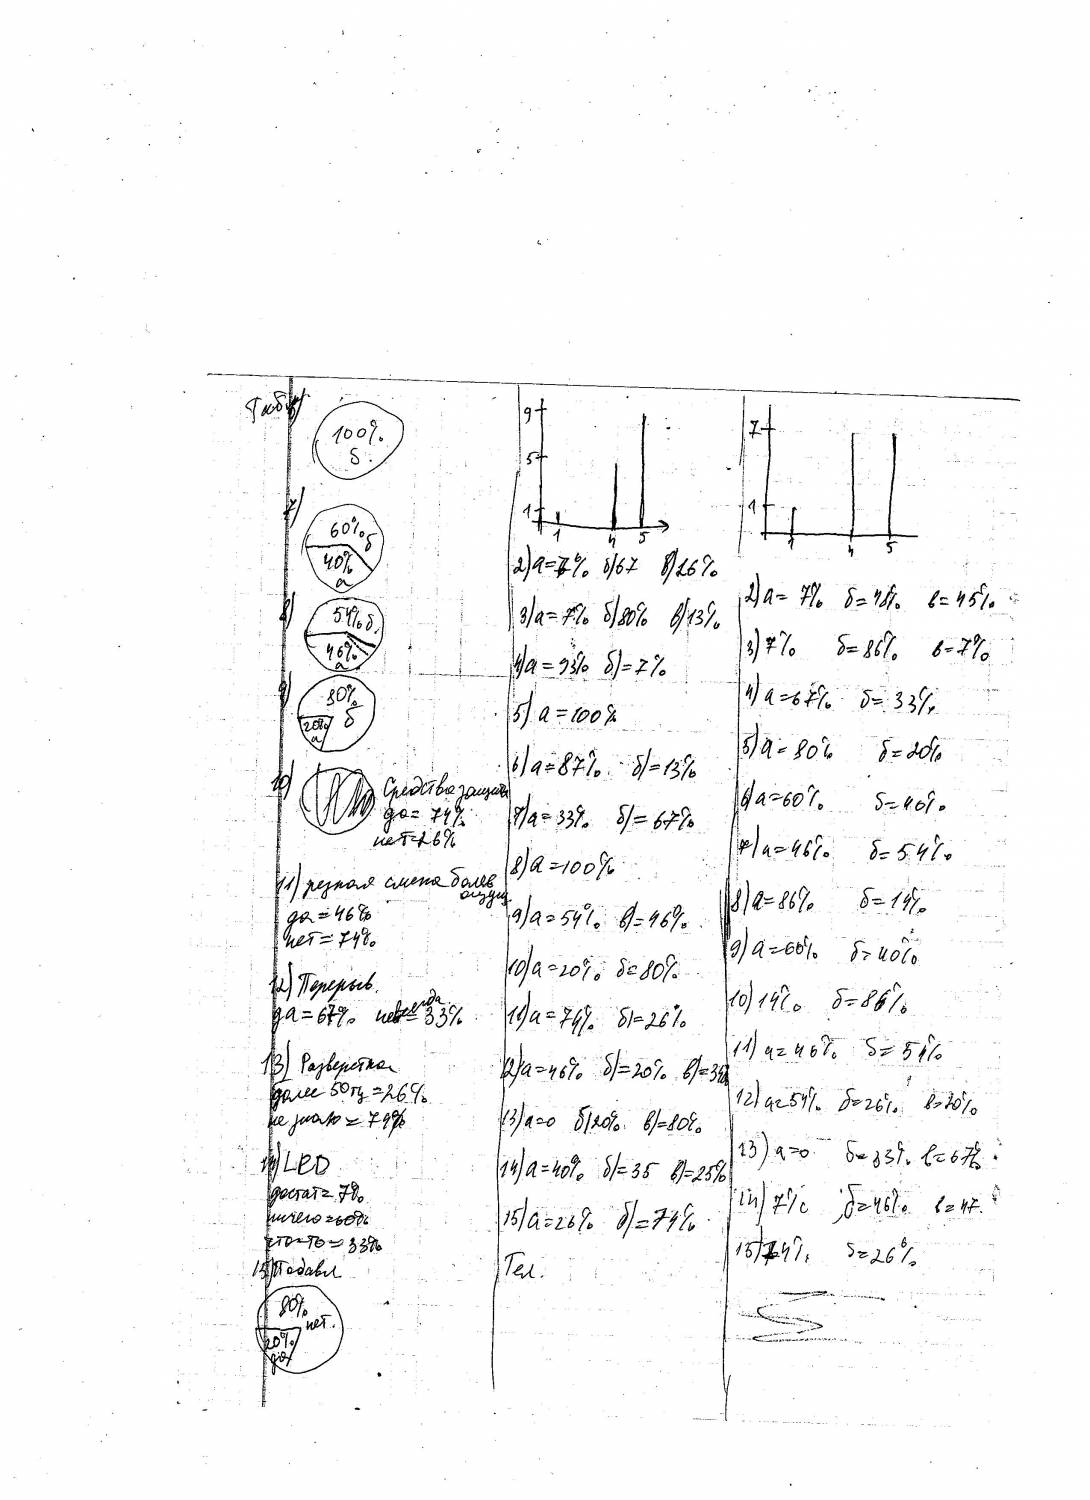 Табл
100%
б.
7)
60% б
40%
а
8)
54% б.
46%
а
9)
80%
б
20%
а
10)
Средства защиты
да = 74%
нет = 26%
11) резкая смена более
да = 46%
нет = 74%
12) Перерыв.
да = 67% 33%
13) Развертка
более 50 гц = 26%
не знаю = 74%
14) LED
достат = 7%
ничего = 60%
что-то = 33%
15) Подавл
80%
нет.
20%
да
9
5
1
1 4 5
2) а = 7% б) 67 в) 26%
3) а = 7% б) 80% в) 13%
4) а = 93% б) = 7%
5) а = 100%
6) а = 87% б) = 13%
7) а = 33% б) = 67%
8) а = 100%
9) а = 54% в) = 46%
10) а = 20% б = 80%
11) а = 74% б) = 26%
12) а = 46% б) = 20% в) = 34%
13) а = 0 б) 20% в) = 80%
14) а = 40% б) = 35 в) = 25%
15) а = 26% б) = 74%
Тел.
7
1
1 4 5
2) а = 7% б = 48% в = 45%
3) 7% б = 86% в = 7%
4) а = 67% б = 33%
5) а = 80% б = 20%
6) а = 60% б = 40%
7) а = 46% б = 54%
8) а = 86% б = 14%
9) а = 60% б = 40%
10) 14% б = 86%
11) а = 46% б = 54%
12) а = 54% б = 26% в = 20%
13) а = 0 б = 33% в = 67%
14) 7% б = 46% в = 47.
15) 74% б = 26%